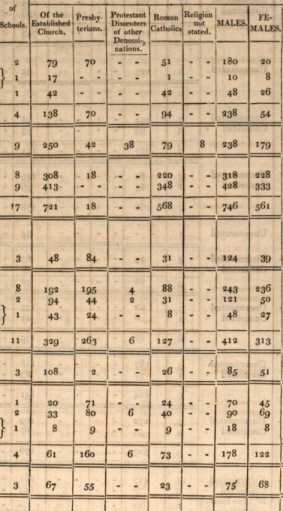 of Schools. Of the Established Church. Presbyterians. Protestant Dissenters of other Denominations. Roman Catholics Religion not stated. MALES. FEMALES.
2 79 70 - - 51 - - 180 20
} 1 17 - - - - 1 - - 10 8
1 42 - - - - 42 - - 48 26
4 138 70 - - 94 - - 238 54
9 250 42 38 79 8 238 179
8 308 18 - - 220 - - 318 228
9 413 - - - - 348 - - 428 333
17 721 18 - - 568 - - 746 561
3 48 84 - - 31 - - 124 39
8 192 195 4 88 - - 243 236
2 94 44 2 31 - - 121 50
} 1 43 24 - - 8 - - 48 27
11 329 263 6 127 - - 412 313
3 108 2 - - 26 - - 85 51
1 20 71 - - 24 - - 70 45
2 33 80 6 40 - - 90 69
} 1 8 9 - - 9 - - 18 8
4 61 160 6 73 - - 178 122
3 67 55 - - 23 - - 75 68